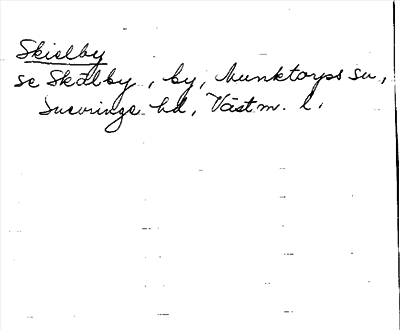 Skielby
se Skälby, by, Munktorps sn,
Snevringe hd, Västm. l.